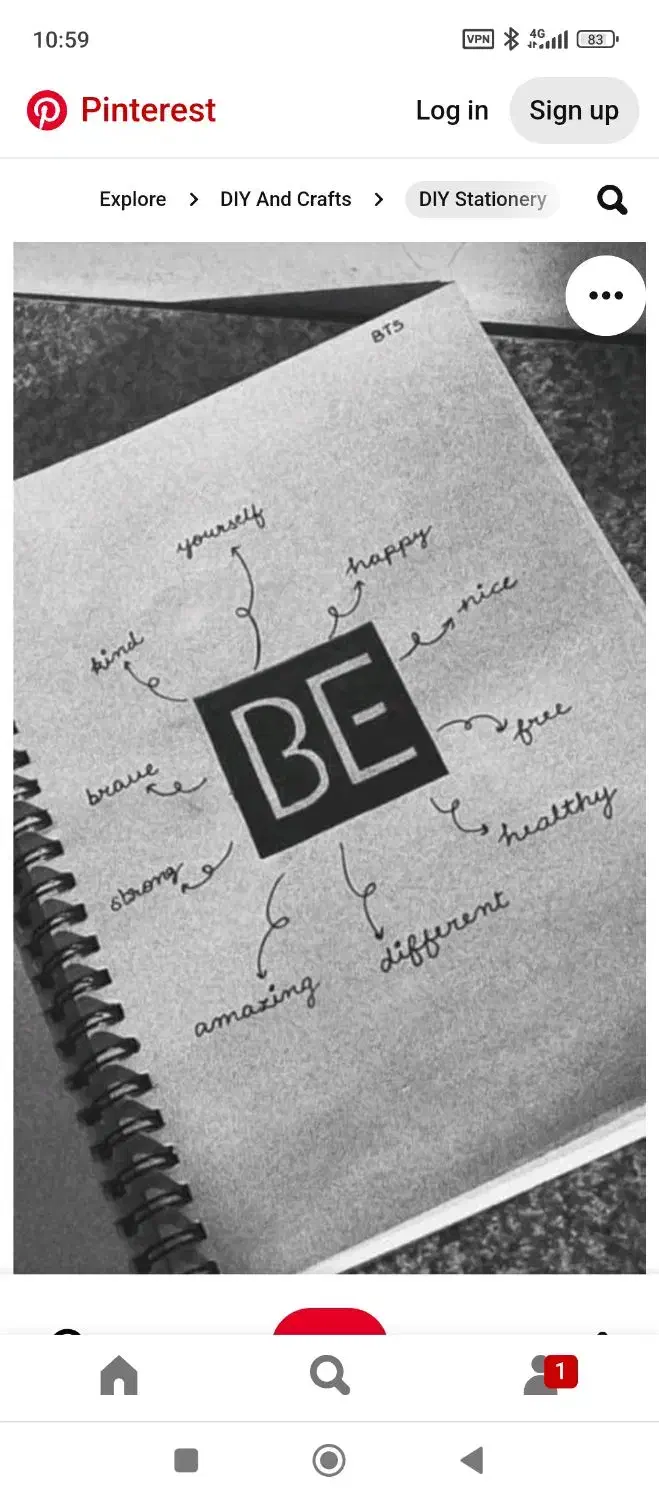 10:59
VPN 4G 83
Pinterest Log in Sign up
Explore > DIY And Crafts > DIY Stationery
BTS
yourself
happy
nice
kind
BE
free
brave
healthy
strong
different
amazing
1